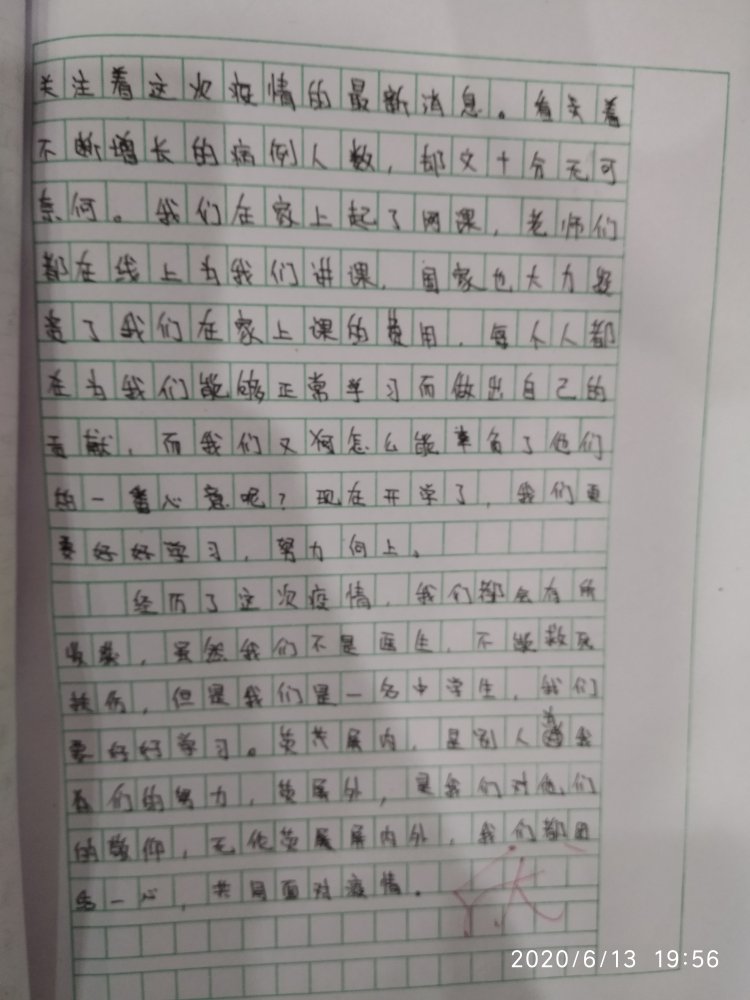 关注着这次疫情的最新消息。每天看着
不断增长的病例人数，却又十分无可
奈何。我们在家上起了网课，老师们
都在线上为我们讲课，国家也大力
了我们在家上课的费用，每个人都
在为我们能够正常学习而做出自己的
贡献，而我们又何怎么能辜负了他们
的一番心意呢？现在开学了，我们更
要好好学习，努力向上。
经历了这次疫情，我们都会有所
收获，虽然我们不是医生，不能救死
扶伤，但是我们是一名中学生，我们
要好好学习。荧屏内，是别人
们的努力，荧屏外，是我们对他们
的敬仰，无论荧屏屏内外，我们都团
结一心，共同面对疫情。
2020/6/13 19:56